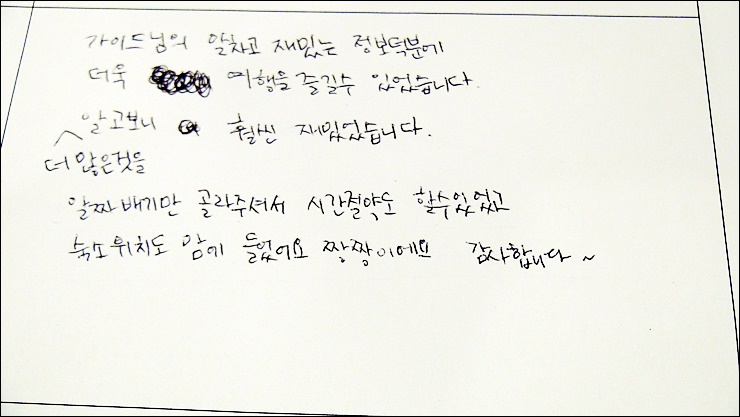 가이드님의 알차고 재밌는 정보덕분에
더욱 여행을 즐길수 있었습니다.
알고보니 훨씬 재밌었습니다.
더 많은것을
알짜배기만 골라주셔서 시간절약도 할수있었고
숙소위치도 맘에 들었어요 짱짱이에요 감사합니다~